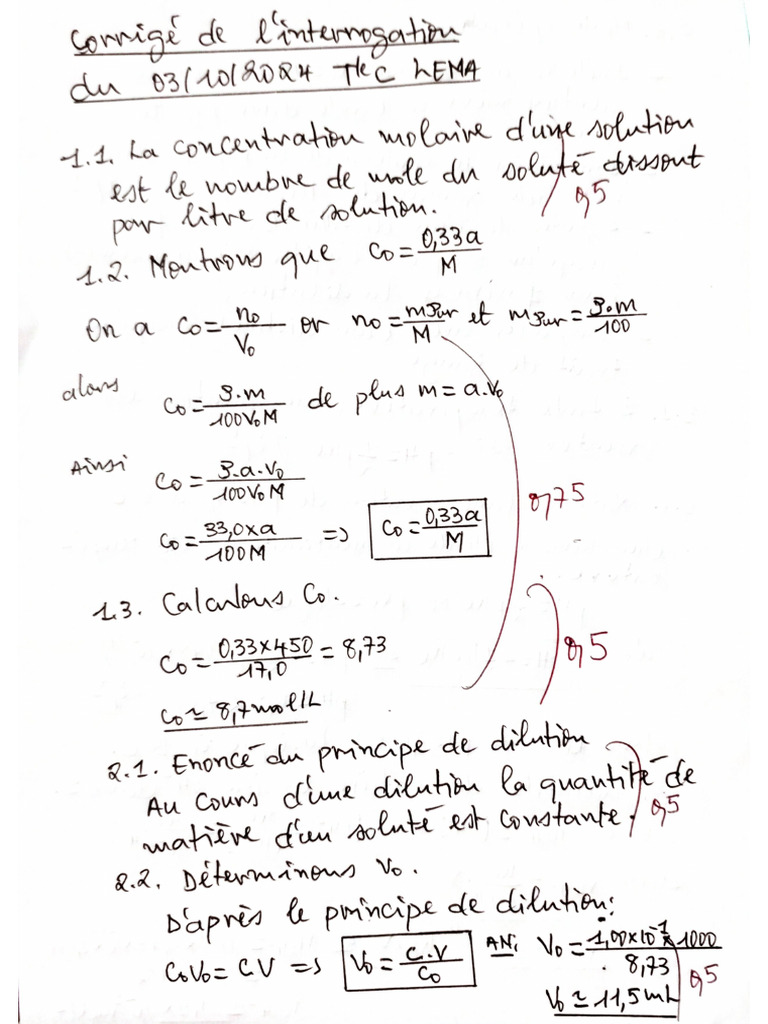 Corrigé de l'interrogation
du 03/10/2024 Tle C LEMA
1.1. La concentration molaire d'une solution
est le nombre de mole du soluté dissout
par litre de solution. 0,5
1.2. Montrons que C0 = 0,33a / M
On a C0 = n0 / V0 or n0 = mpur / M et mpur = P.m / 100
alors C0 = P.m / 100V0M de plus m = a.V0
Ainsi C0 = P.a.V0 / 100V0M
0,75
C0 = 33,0×a / 100M => C0 = 0,33a / M
1.3. Calculons C0.
C0 = 0,33×450 / 17,0 = 8,73 0,5
C0 ≃ 8,7mol/L
2.1. Enoncé du principe de dilution
Au cours d'une dilution la quantité de
matière d'un soluté est constante. 0,5
2.2. Déterminons V0.
D'après le principe de dilution:
C0V0 = C.V => V0 = C.V / C0 AN: V0 = 1,00×10⁻¹ × 1000 / 8,73
V0 ≃ 11,5mL 0,5